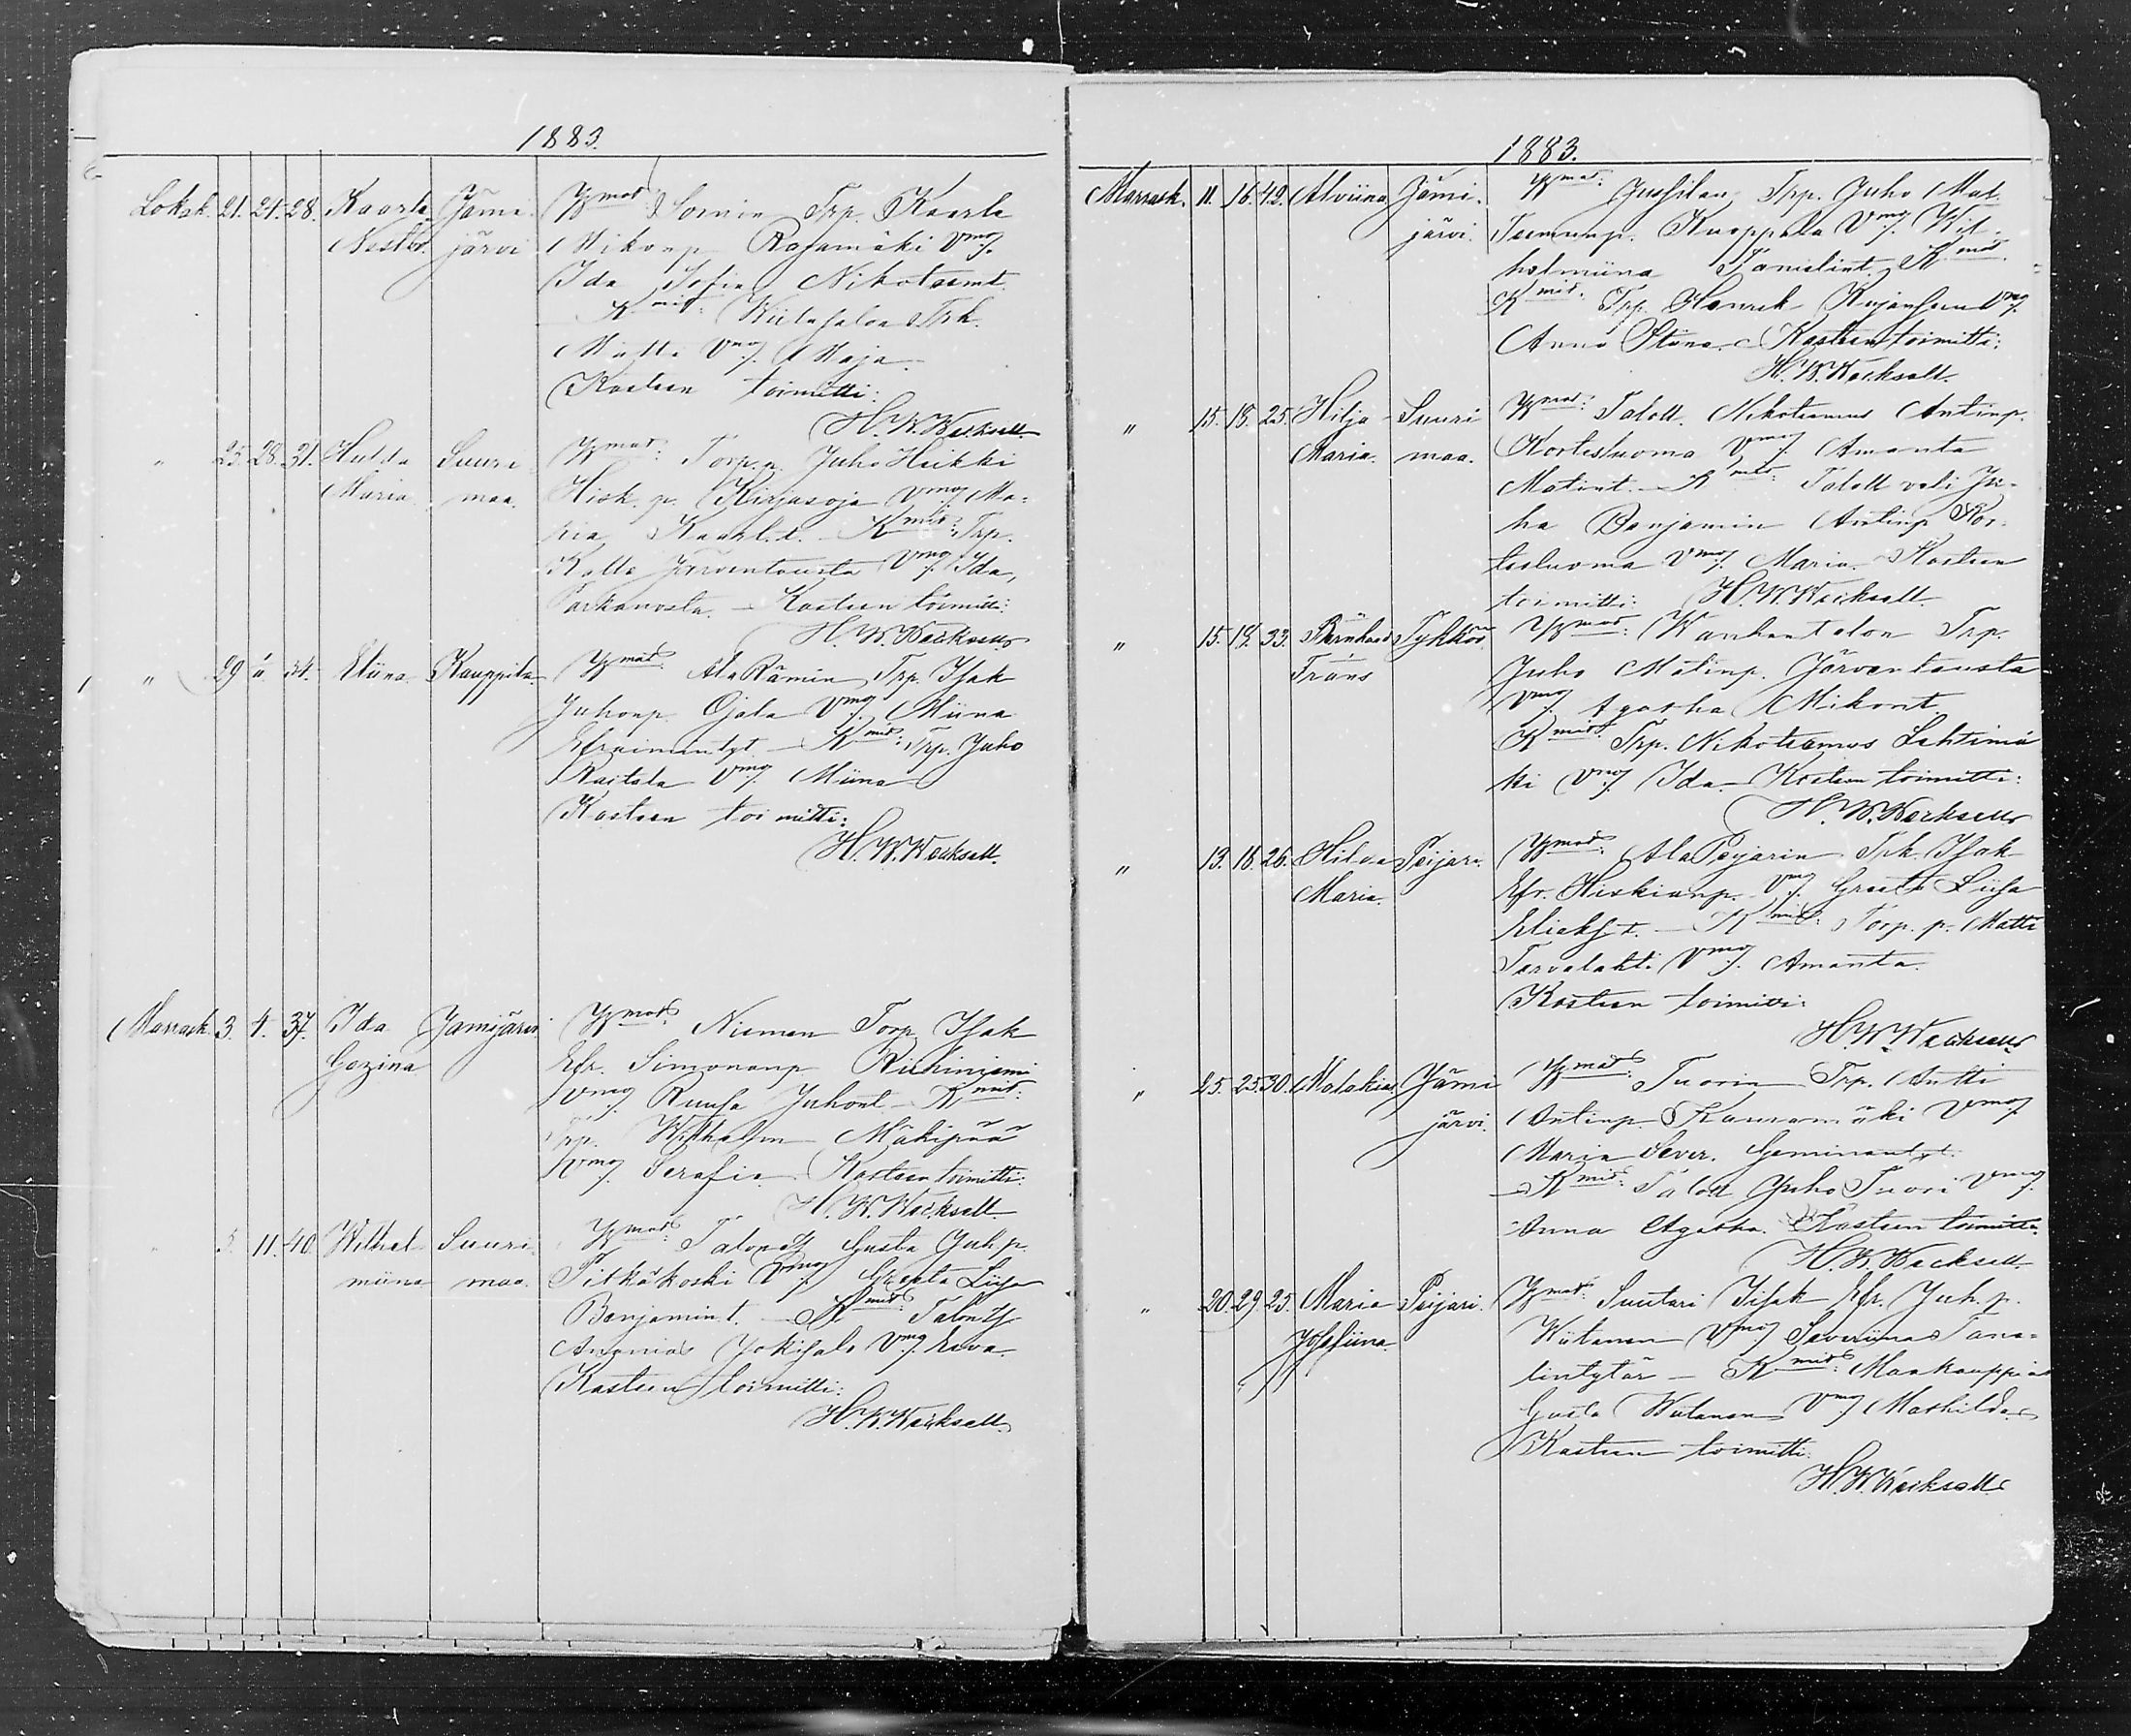 1883.
Lokak. 21. 21. 28. Kaarle Jämi- Wmat: Sorvin Trp. Kaarle
Nestor. järvi Mikonp. Rajamäki Vmo
Ida Sofia Nikoteemt.
Kmit: Kiilahalon Trk.
Matti Vmo Maja.
Kasteen toimitti:
H. W. Wacksell.
" 25. 28. 31. Hulda Suuri Wmat: Torp.p. Juho Heikki
Maria. maa. Hisk. p. Kirjasoja Vmo Ma-
ria Kaarl.t. Kmit: Trp.
Kalle Järventausta Vmo Ida,
Parkanosta. Kasteen toimitti:
H. W. Wacksell
" 29 " 34. Eliina. Kauppila Wmat: AlaRämin Trp. Isak
Juhonp. Ojala Vmo Miina
Efraimintyt. Kmit: Trp. Juho
Raitala Vmo Miina
Kasteen toimitti:
H. W. Wacksell.
Marrask. 3. 4. 37. Ida Jämijärvi Wmat: Niemen Torp. Isak
Gozina Efr. Simononp. Riihiniemi
Vmo Ruusa Juhont. Kmit:
Trp. Wilhelm Mäkipää
Vmo Serafia. Kasteen toimitti:
H. W. Wacksell.
5. 11. 40. Wilhel- Suuri Wmat: Talont. Gusta Juh.p.
miina maa. Pitkäkoski Vmo Greeta Liisa
Benjamint. Kmit: Talont.
Ananias Jokisalo Vmo Eeva
Kasteen toimitti:
H. W. Wacksell.
1883.
Marrask. 11. 16. 42. Alviina Jämi- Wmat: Jussilan Trp. Juho Mat.
järvi. Kuoppala Vmo Wil-
helmiina Kmit.
Kmit: Trp. Henrik Vmo
Anna Stiina. Kasteen toimitti:
H. W. Wacksell.
" 15. 18. 25. Hilja Suuri Wmat: Taloll. Nikoteemus Antinp.
Maria. maa. Kortesluoma Vmo Amanta
Matint. Kmit: Taloll. veli Ju-
ha Benjamin Antinp. Kor-
tesluoma Vmo Maria. Kasteen
toimitti: H. W. Wacksell.
" 15. 18. 33. Bernhard Tykköö Wmat: Wanhantalon Trp.
Frans Juho Matinp. Järventausta
Vmo Agatha Mikont.
Kmit: Trp. Nikoteemus Lehtimä
ki Vmo Ida. Kasteen toimitti:
H. W. Wacksell
" 13. 18. 26. Hilda Peijari. Wmat: AlaPeijarin Trk. Isak
Maria. Efr. Hiskianp. Vmo Greeta Liisa
Eliaks.t. Kmit: Torp. p. Matti
Tervalahti Vmo Amanta.
Kasteen toimitti:
H. W. Wacksell
" 25. 25. 30. Malakias. Jämi Wmat: Tuorin Trp. Antti
järvi. Antinp. Kauramäki Vmo
Maria Sever.
Kmit: Taloll. Juho Tuori Vmo
Anna Agatha. Kasteen toimitti:
H. W. Wacksell
" 20. 29. 25. Maria Peijari. Wmat: Suutari Iisak Efr. Juh.p.
Josefiina. Wiitanen Vmo Saveriina Tane-
lintytär — Kmit: Maakauppias
Gusta Wiitanen Vmo Mathilda
Kasteen toimitti:
H. W. Wacksell.